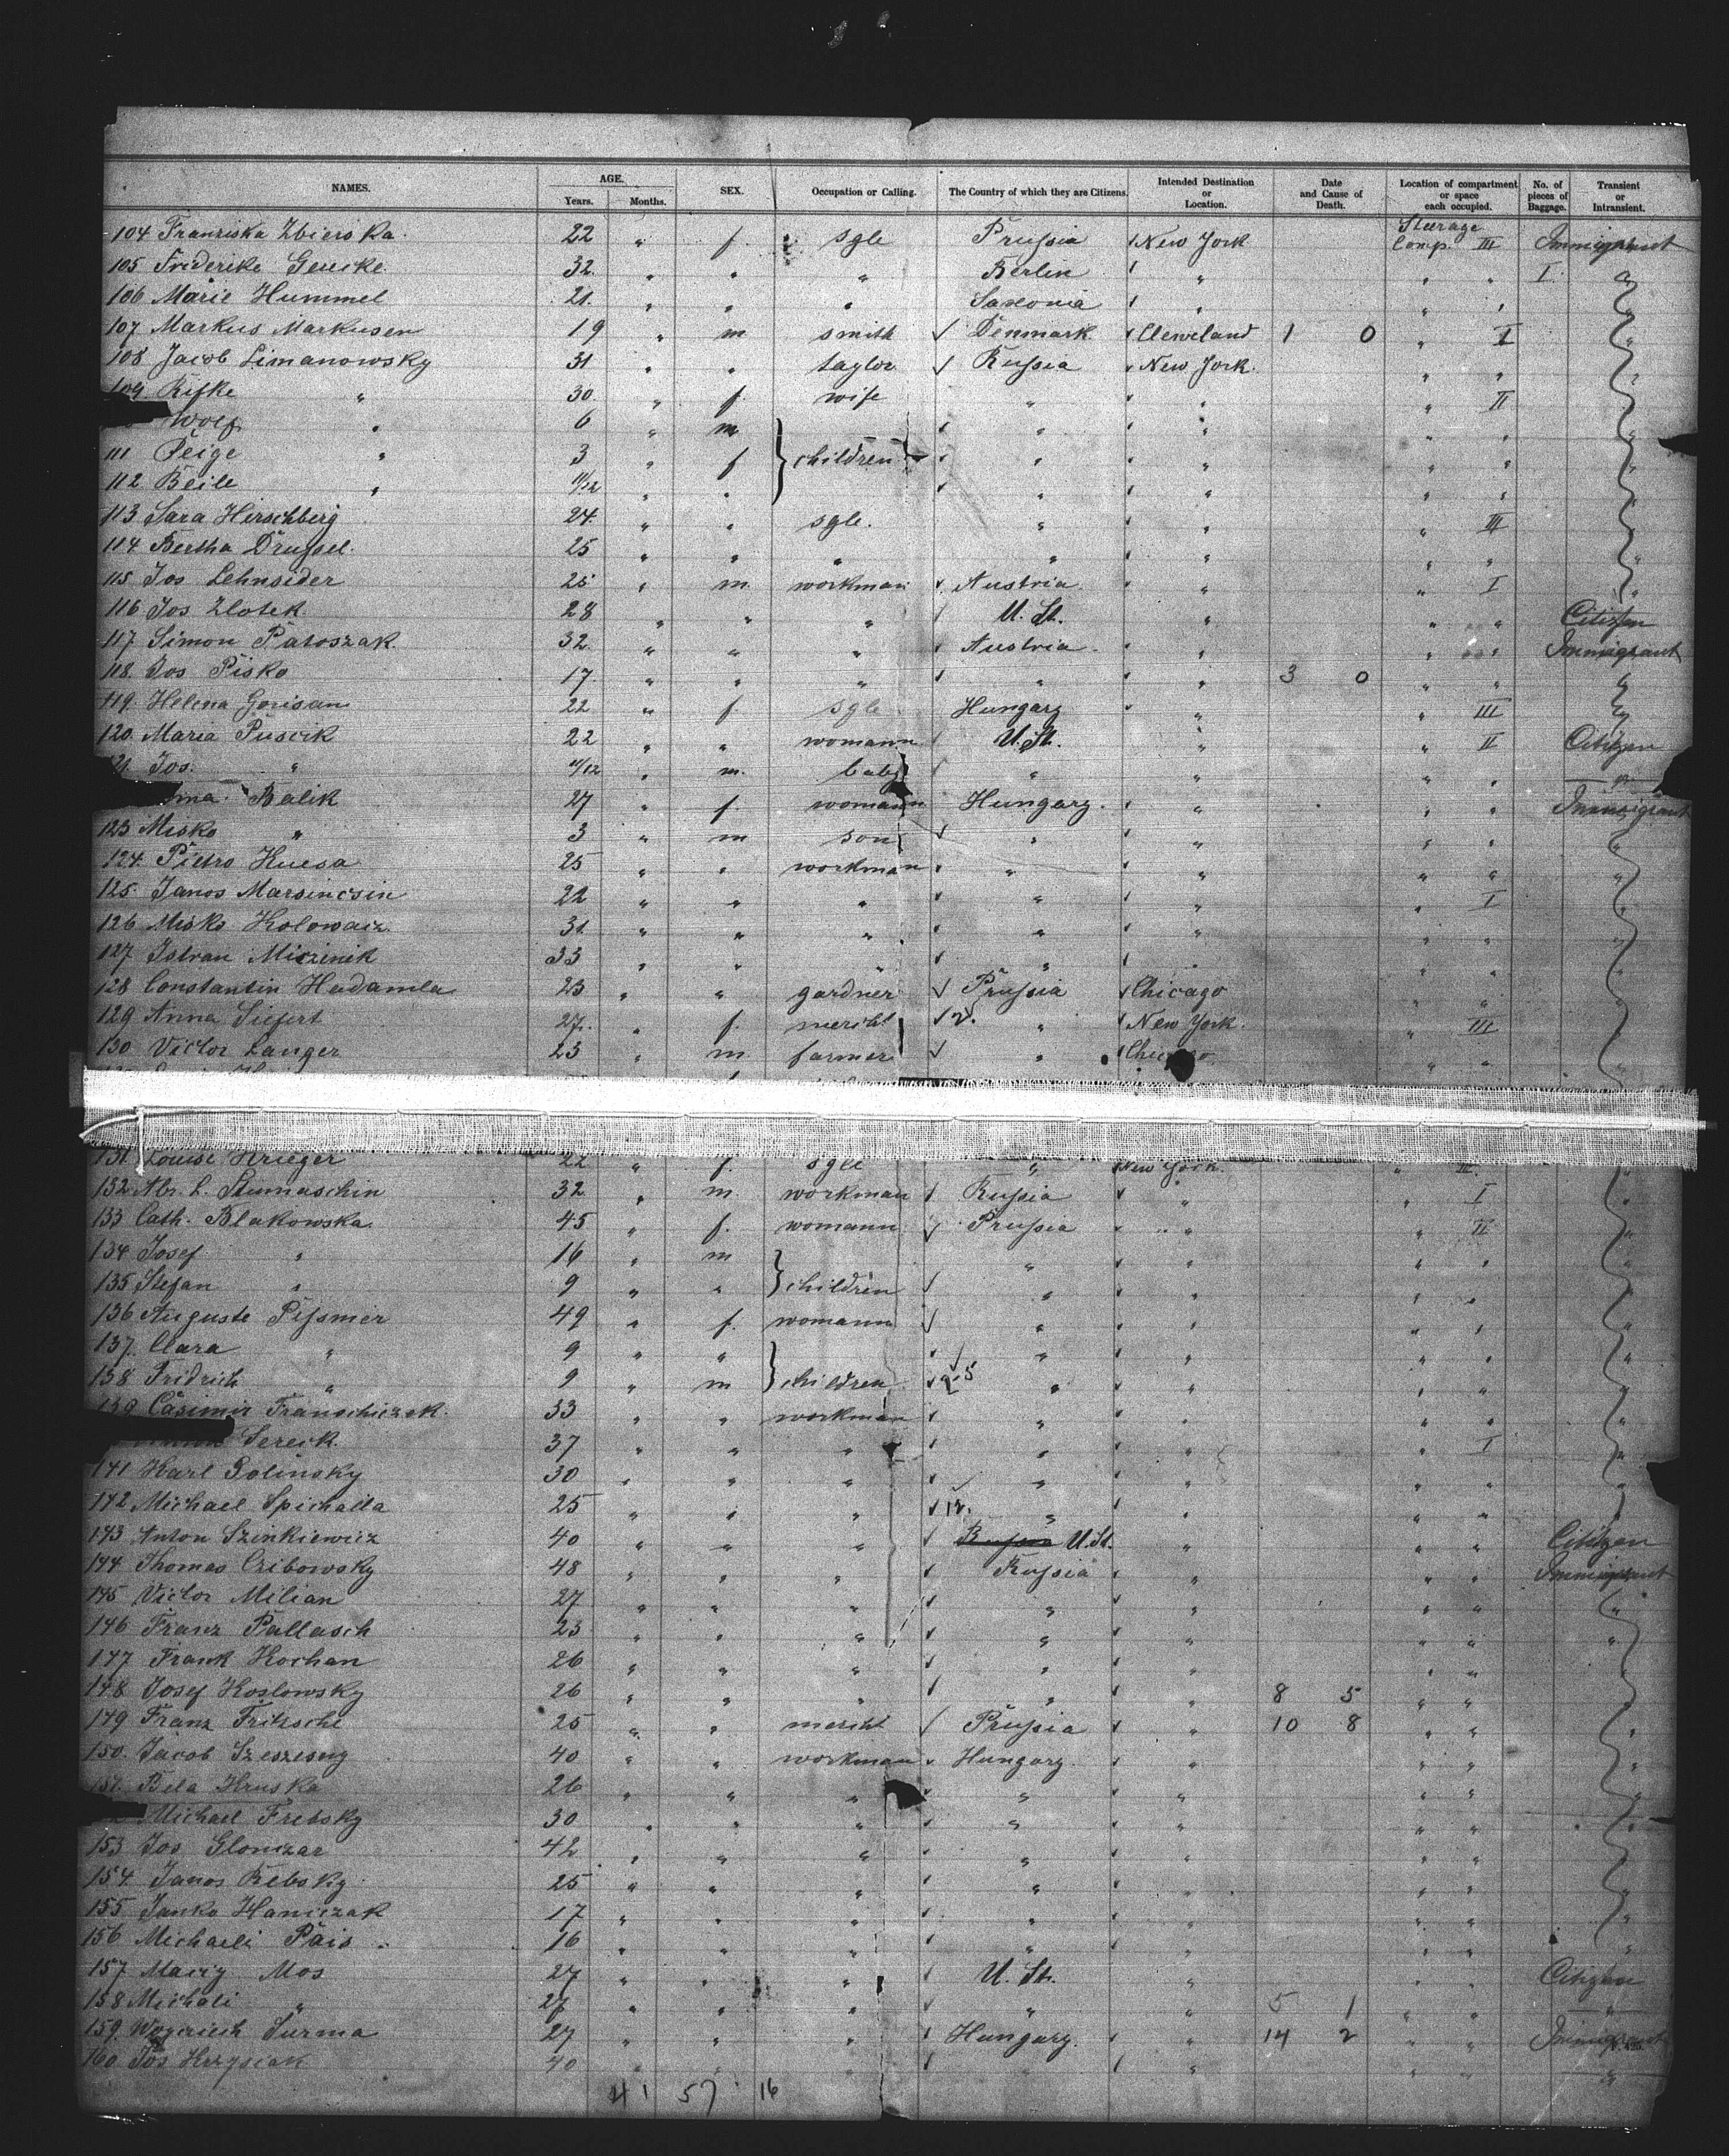 NAMES. AGE. Years. Months. SEX. Occupation or Calling. The Country of which they are Citizens. Intended Destination or Location. Date and Cause of Death. Location of compartment or space each occupied. No. of pieces of Baggage. Transient or Intransient.
104 Franziska Zbierska 22 " f. sgle Prussia New York Steerage Comp. III Immigrant
105 Friderike Geucke 32 " " " Berlin " " " I "
106 Marie Hummel 21 " " " Saxonia " " " "
107 Markus Markusen 19 " m smith Denmark Cleveland 1 0 " I "
108 Jacob Limanowsky 31 " " taylor Russia New York. " " "
109 Rifke " 30 " f. wife " " " II "
Wolf " 6 " m " " " " "
111 Peige " 3 " f children " " " " "
112 Beile " 11/12 " " " " " " "
113 Sara Hirschberg 24 " " sgle. " " " III "
114 Bertha Drussel. 25 " " " " " " " "
115 Jos Lehnsider 25 " m workman Austria " " I "
116 Jos Zlotek 28 " " " U. St. " " " Citizen
117 Simon Patoszak. 32 " " " Austria " " " Immigrant
118 Jos Pisko 17 " " " " " 3 0 " " "
119 Helena Gorisan 22 " f sgle Hungary " " III "
120 Maria Puscik 22 " " womann U. St. " " II Citizen
21 Jos. " 11/12 " m. baby " " " " "
Balik 27 " f womann Hungary. " " " Immigrant
123 Misko " 3 " m son " " " " "
124 Pietro Kuesa 25 " " workman " " " " "
125 Janos Marsincsin 22 " " " " " " I "
126 Misko Kolowaiz 31 " " " " " " " "
127 Istvan Miczinik 33 " " " " " " " "
128 Constantin Hadamla 23 " " gardner Prussia Chicago " " "
129 Anna Siefert 27. " f. mercht " New York. " III
130 Victor Langer 23 " m farmer " Chicago " " "
131 Louise Krieger 22 " f. sgle " New York. " III. "
132 Abr. L. Stumaschin 32 " m workman Russia " " I "
133 Cath. Blakowska 45 " f. womann Prussia " " II "
134 Josef " 16 " m " " " " "
135 Stefan " 9 " " children " " " " "
136 Auguste Pissmer 49 " f. womann " " " " "
137. Clara " 9 " " " " " " "
138 Fridrich " 9 " m children " " " " "
139 Casimir Franschiczek. 33 " " workman " " " " "
Sereck. 37 " " " " " " I "
141 Karl Golinsky 30 " " " " " " " "
142 Michael Spichalla 25 " " " 12. " " " " "
143 Anton Szinkiewicz 40 " " " Russia U. St. " " " Citizen
144 Thomas Czibowsky 48 " " " Russia " " " Immigrant
145 Victor Milian 27 " " " " " " " "
146 Franz Pallasch 23 " " " " " " " "
147 Frank Kochan 26 " " " " " " " "
148 Josef Koslowsky 26 " " " " " 8 5 " "
149 Franz Fritzsche 25 " " mercht Prussia " 10 8 " " "
150. Jacob Szeszesny 40 " " workman Hungary. " " " "
151. Bela Kruska 26 " " " " " " " "
Michael Frebsky 30 " " " " " " " "
153 Jos Glonczar 42 " " " " " " "
154 Janos Rebsky 25 " " " " " " " "
155 Janko Hanczak 17 " " " " " " " "
156 Michaeli Pais 16 " " " " " " " "
157 Maciy Mos 27 " " " U. St. " " " Citizen
158 Michali " 27 " " " " " 5 1 " " "
159. Surma 27 " " " Hungary. " 14 2 " " Immigrant
160 Jos Krzysiak 40 " " " " " " " "
41 57 16